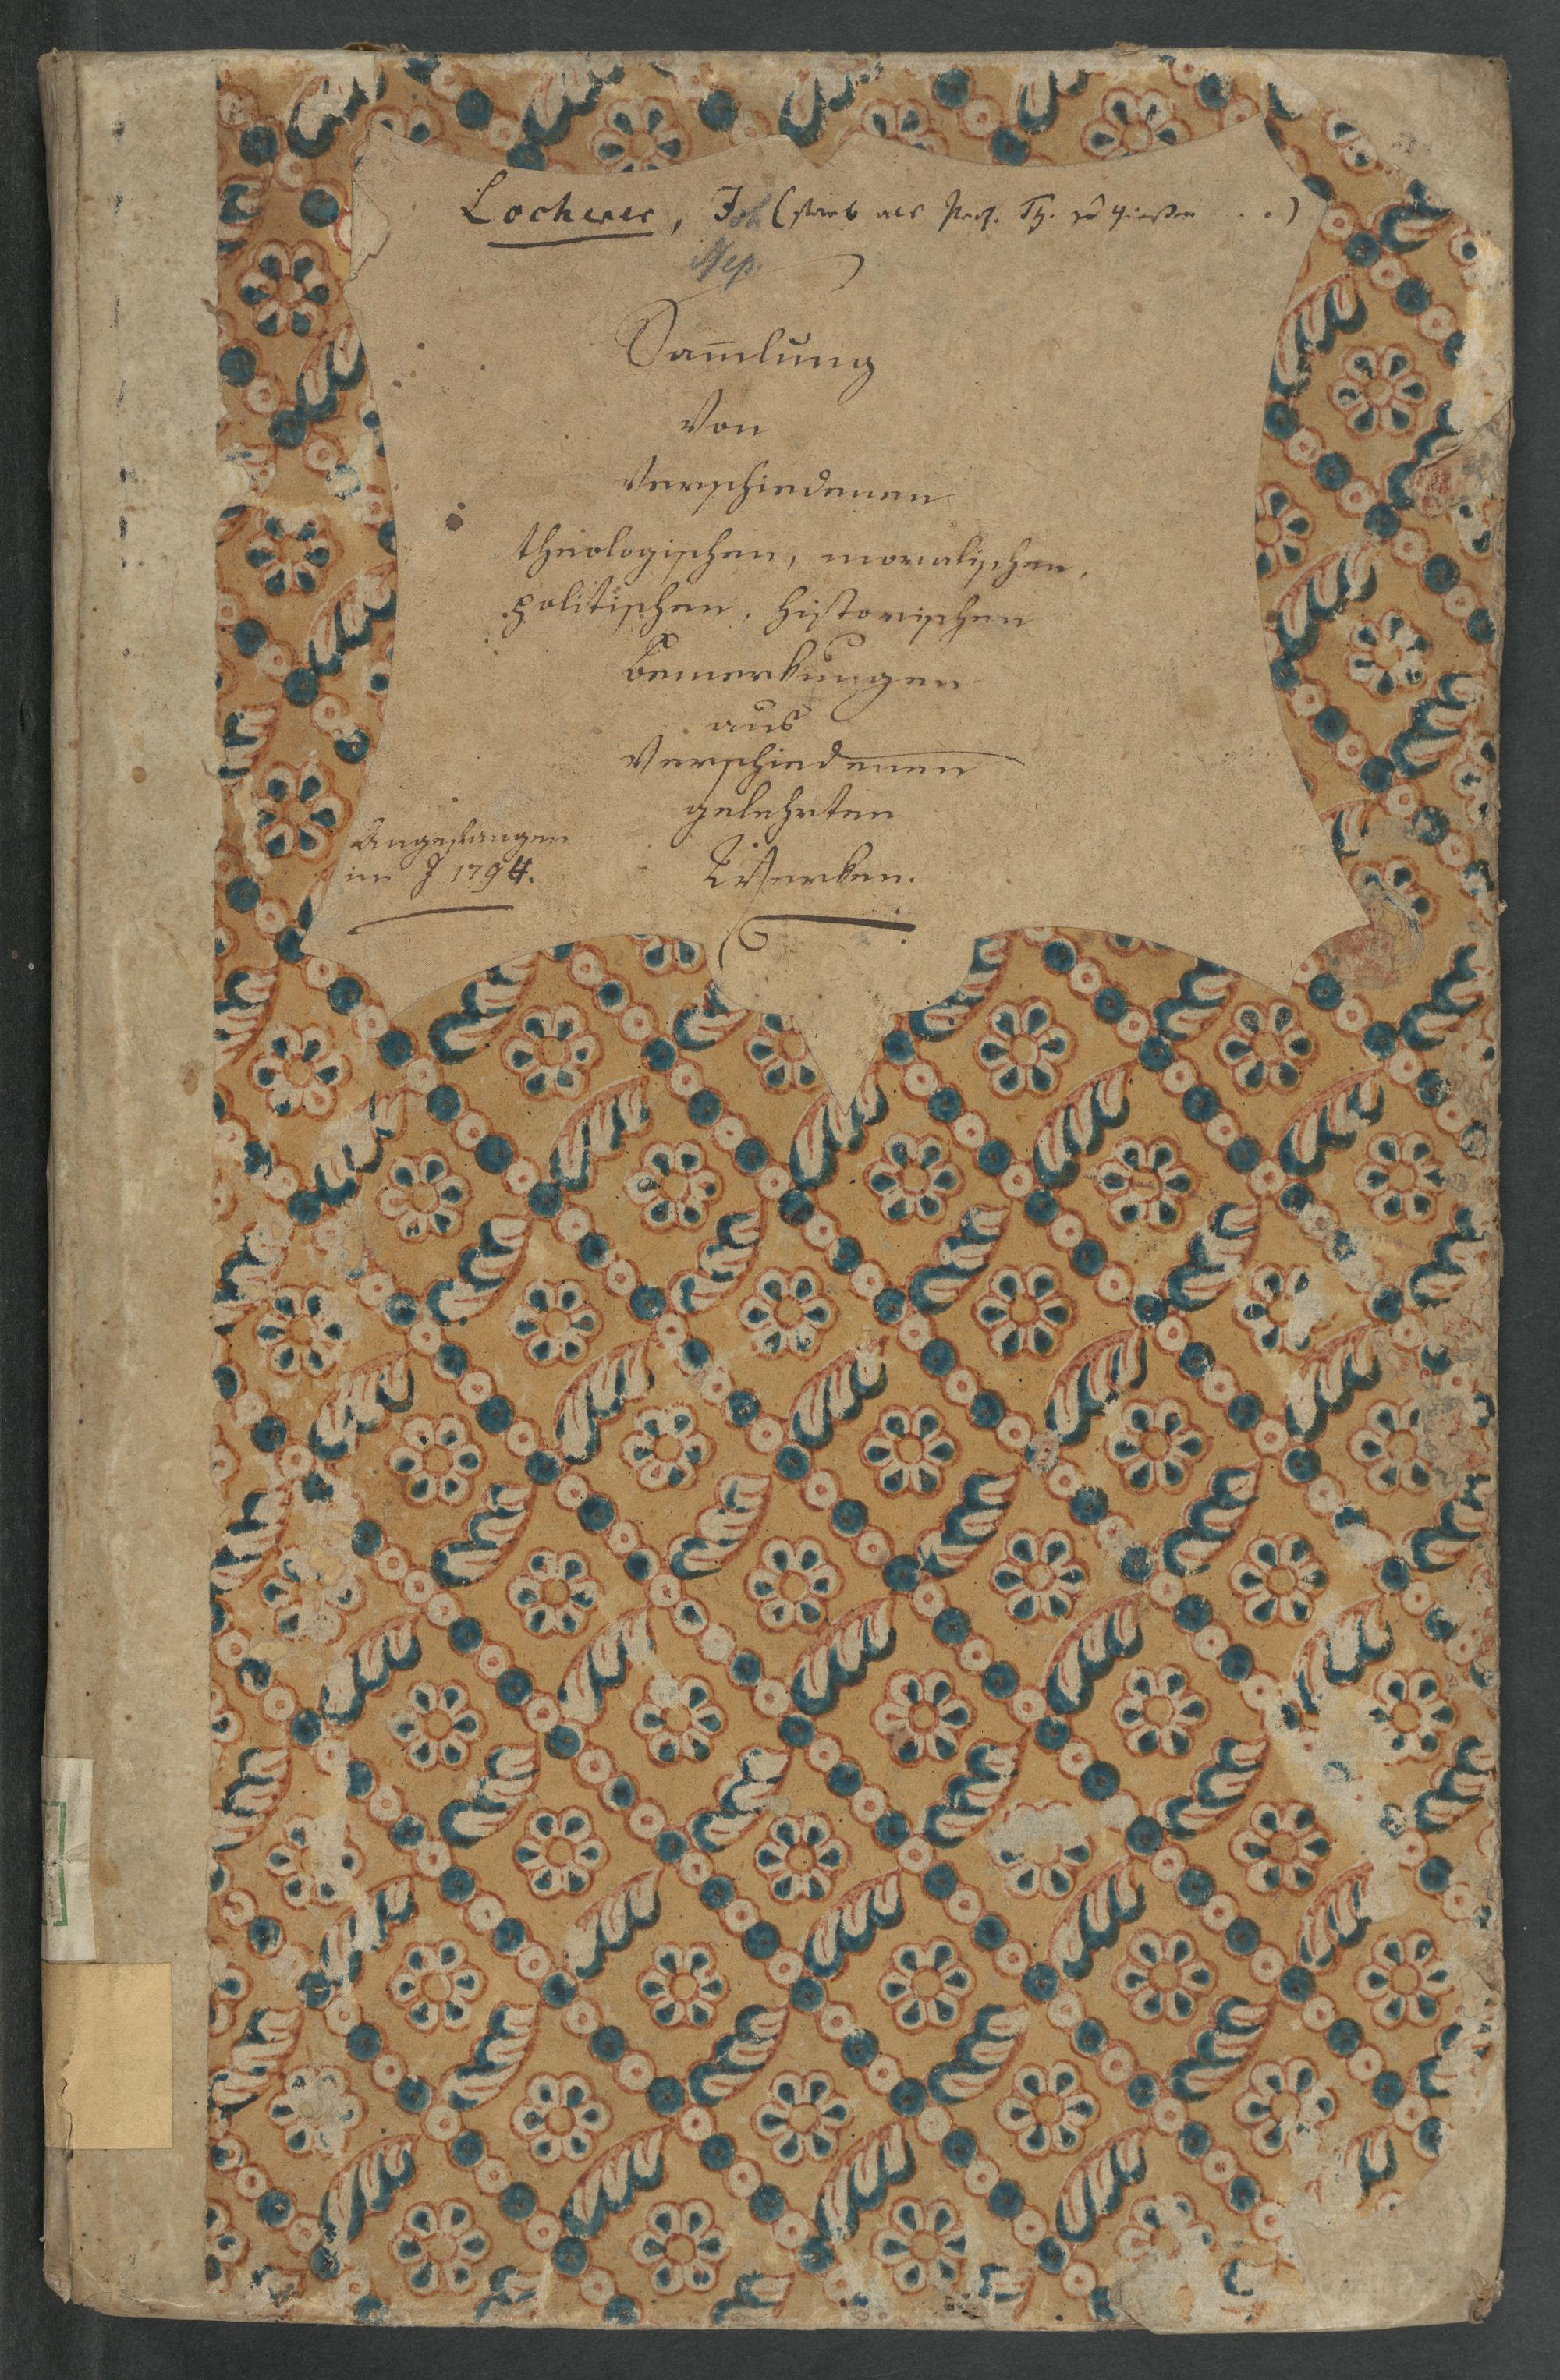 Locherer, Joh (starb als Prof. Th. zu Gießen . .)
Nep.
Sam̅lung
Von
Verschiedenen
theologischen, moralischen,
politischen, historischen
Bemerkungen
aus
Verschiedenen
gelehrten
Werken.
Angefangen
im J 1794.